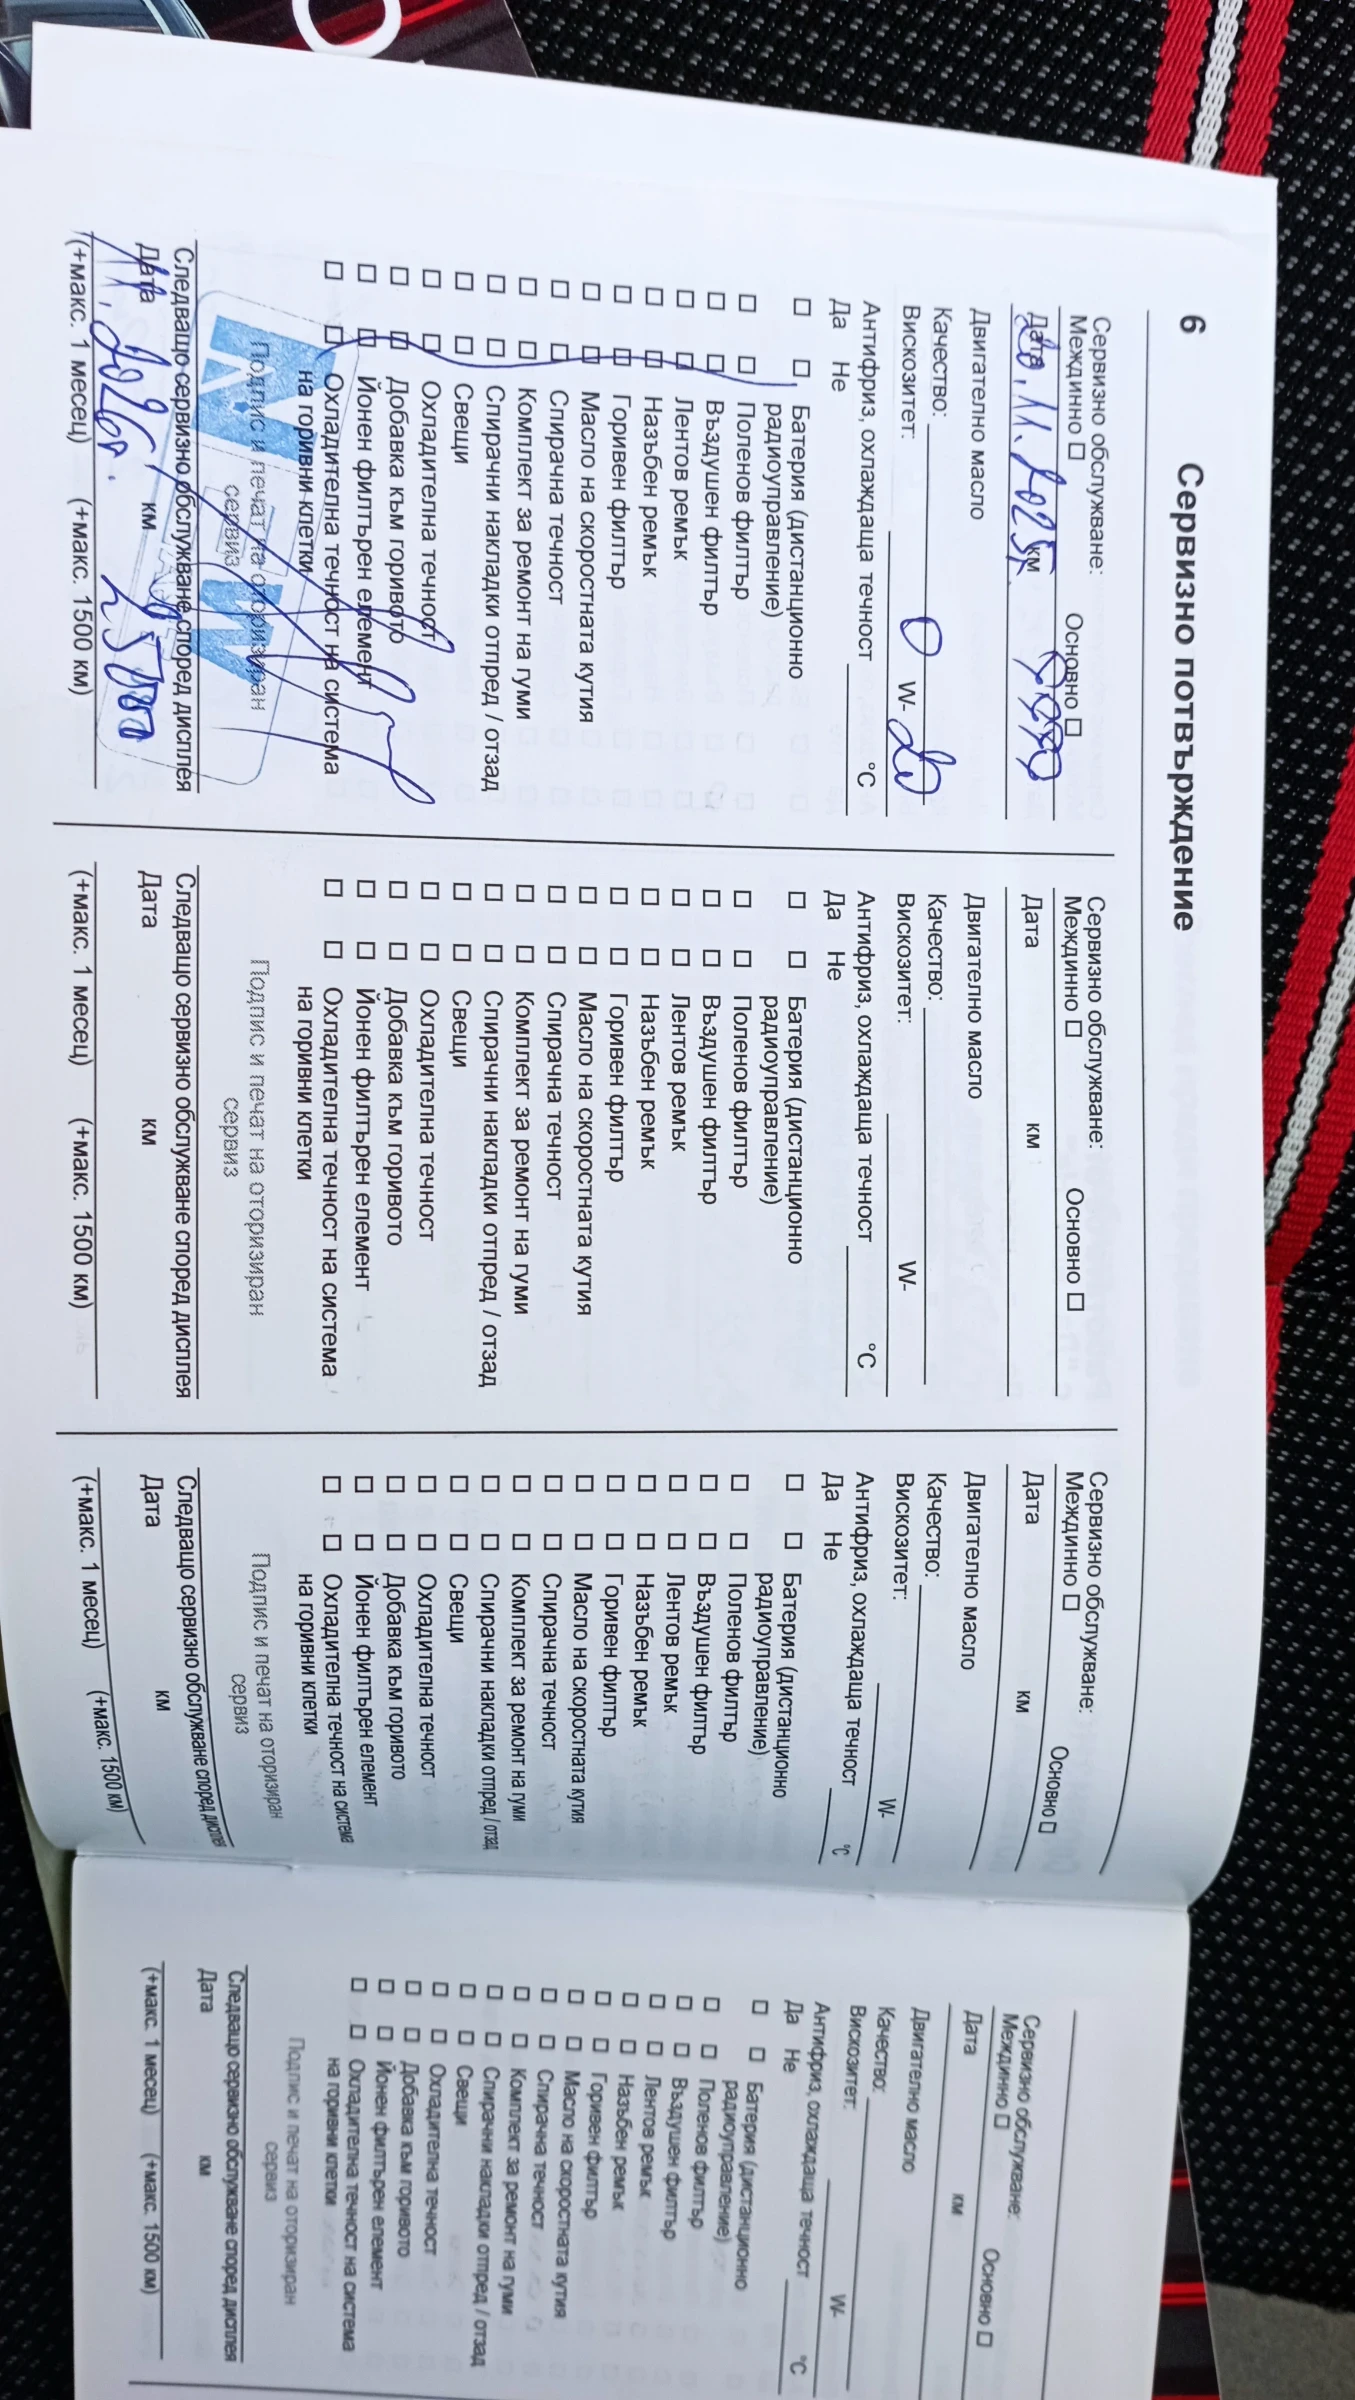 6 Сервизно потвърждение
Сервизно обслужване:
Междинно □ Основно □
Дата 20.11.2025 км
Двигателно масло
Качество:
Вискозитет: 0 W- 20
Антифриз, охлаждаща течност °C
Да Не
□ □ Батерия (дистанционно
радиоуправление)
□ □ Поленов филтър
□ □ Въздушен филтър
□ □ Лентов ремък
□ □ Назъбен ремък
□ □ Горивен филтър
□ □ Масло на скоростната кутия
□ □ Спирачна течност
□ □ Комплект за ремонт на гуми
□ □ Спирачни накладки отпред / отзад
□ □ Свещи
□ □ Охладителна течност
□ □ Добавка към горивото
□ □ Йонен филтърен елемент
□ □ Охладителна течност на система
на горивни клетки
Подпис и печат на оторизиран
сервиз
Следващо сервизно обслужване според дисплея
Дата км
11.2026г. 25000
(+макс. 1 месец) (+макс. 1500 км)
Сервизно обслужване:
Междинно □ Основно □
Дата км
Двигателно масло
Качество:
Вискозитет: W-
Антифриз, охлаждаща течност °C
Да Не
□ □ Батерия (дистанционно
радиоуправление)
□ □ Поленов филтър
□ □ Въздушен филтър
□ □ Лентов ремък
□ □ Назъбен ремък
□ □ Горивен филтър
□ □ Масло на скоростната кутия
□ □ Спирачна течност
□ □ Комплект за ремонт на гуми
□ □ Спирачни накладки отпред / отзад
□ □ Свещи
□ □ Охладителна течност
□ □ Добавка към горивото
□ □ Йонен филтърен елемент
□ □ Охладителна течност на система
на горивни клетки
Подпис и печат на оторизиран
сервиз
Следващо сервизно обслужване според дисплея
Дата км
(+макс. 1 месец) (+макс. 1500 км)
Сервизно обслужване:
Междинно □ Основно □
Дата км
Двигателно масло
Качество:
Вискозитет: W-
Антифриз, охлаждаща течност °C
Да Не
□ □ Батерия (дистанционно
радиоуправление)
□ □ Поленов филтър
□ □ Въздушен филтър
□ □ Лентов ремък
□ □ Назъбен ремък
□ □ Горивен филтър
□ □ Масло на скоростната кутия
□ □ Спирачна течност
□ □ Комплект за ремонт на гуми
□ □ Спирачни накладки отпред / отзад
□ □ Свещи
□ □ Охладителна течност
□ □ Добавка към горивото
□ □ Йонен филтърен елемент
□ □ Охладителна течност на система
на горивни клетки
Подпис и печат на оторизиран
сервиз
Следващо сервизно обслужване според дисплея
Дата км
(+макс. 1 месец) (+макс. 1500 км)
Сервизно обслужване:
Междинно □ Основно □
Дата км
Двигателно масло
Качество:
Вискозитет: W-
Антифриз, охлаждаща течност °C
Да Не
□ □ Батерия (дистанционно
радиоуправление)
□ □ Поленов филтър
□ □ Въздушен филтър
□ □ Лентов ремък
□ □ Назъбен ремък
□ □ Горивен филтър
□ □ Масло на скоростната кутия
□ □ Спирачна течност
□ □ Комплект за ремонт на гуми
□ □ Спирачни накладки отпред / отзад
□ □ Свещи
□ □ Охладителна течност
□ □ Добавка към горивото
□ □ Йонен филтърен елемент
□ □ Охладителна течност на система
на горивни клетки
Подпис и печат на оторизиран
сервиз
Следващо сервизно обслужване според дисплея
Дата км
(+макс. 1 месец) (+макс. 1500 км)